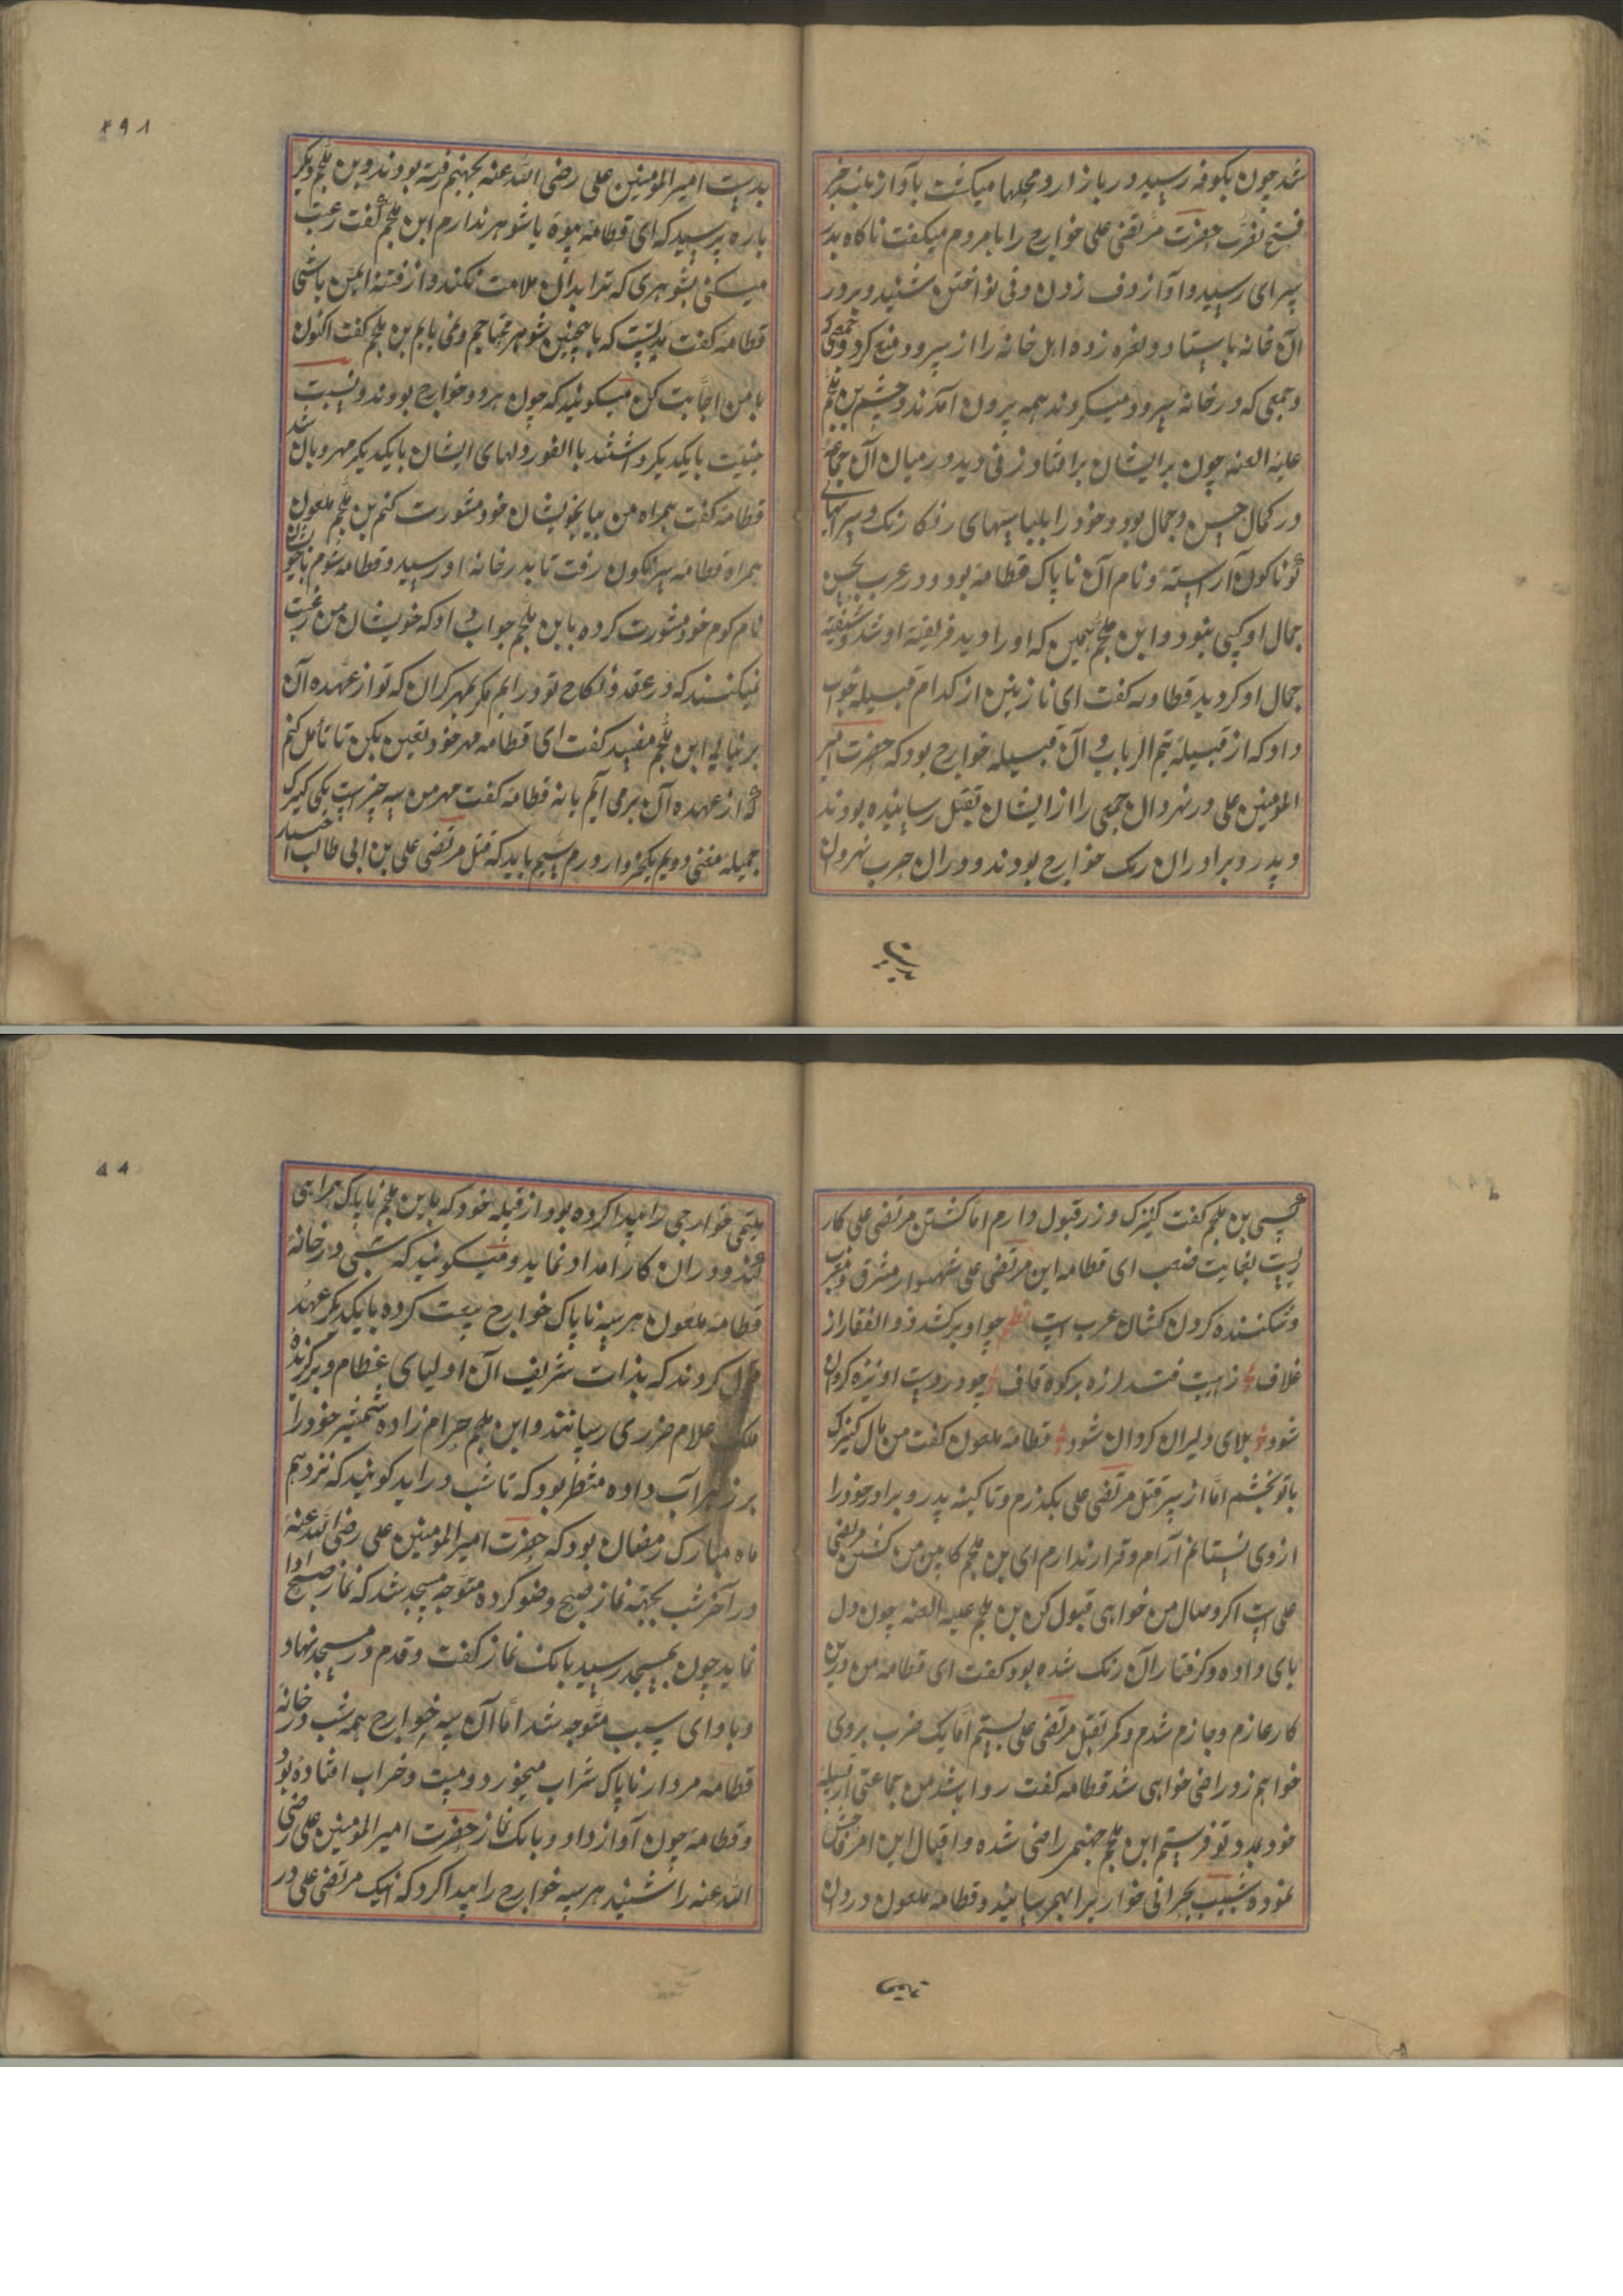 شد چون بکوفه رسید در بازار و محلها میکشت بآواز بلند خبر
فتح نفرت حضرت مرتضی علی خوارج را بامردم میکفت ناکاه بدر
سرای رسید و آواز دف زدن و نی نواختن شنید و بر در
آن خانه بایستاد و نعره زده اهل خانه را از سرود منع کرد
و جمعی که در خانه سرود میکردند همه بیرون آمدند و چشم بن ملجم
علیه العنه چون بر ایشان برافتاد زنی دید در میان آن جماعة
در کمال حسن و جمال بود و خود را بلباسهای رنکا رنک و پیرایهای
کوناکون آراسته و نام آن ناپاک قطامه بود و در عرب بحسن
جمال او کسی نبود و ابن ملجم همین که او را دید فریفتهٔ او شد و شیفتهٔ
جمال او کردید قطامه کفت ای نازنین از کدام قبیله جواب
داد که از قبیله تیم الرباب و آن قبیله خوارج بود که حضرت امیر
المومنین علی در نهروان جمعی را از ایشان بقتل رسانیده بودند
و پدر و برادر ان زنک خوارج بودند و در ان حرب نهروان
بدست
۴۹۸
بدست امیر المومنین علی رضی الله عنه بجهنم رفته بودند و بن ملجم دیکر
باره پرسید که ای قطامه بیوهٔ یا شوهر ندارم ابن ملجم کفت رغبت
میکنی بشوهری که ترا بدان ملامت نکند و از فتنه ایمن باشی
قطامه کفت مدتیست که با چنین شوهر محتاجم و نمی یابم بن ملجم کفت اکنون
با من اجابت کن میکویند که چون هر دو خوارج بودند و نسبت
جنیت بایکدیکر داشتند با الفور دلهای ایشان بایکدیکر مهربان شد
قطامه کفت همراه من بیا بخویشان خود مشورت کنم بن ملجم ملعون
همراه قطامه سرنکون رفت تا بدر خانه او رسید و قطامه شوم
تمام کوم خود مشورت کرده باین ملجم جواب داد که خویشان من رغبت
نمیکنند که در عقد و نکاح تو درایم مکر بمهر کران که تو از عهده آن
برنیایی ابن ملجم مفسد کفت ای قطامه مهر خود تعین بکن تا تأمل کنم
که از عهده آن برمی آیم یا نه قطامه کفت مهر من سه چیز است یکی کنیزک
جمیله مغنی دویم یکهزار درم سیم باید که قتل مرتضی علی بن ابی طالب اختیار
کنی بن ملجم کفت کنیزک و زر قبول دارم اما کشتن مرتضی علی کار
یست بغایت صعب ای قطامه این مرتضی علی شهسوار مشرق و مغرب
و شکننده کردن کشان عرب است نظم چو او برکشد ذو الفقار از
غلاف ز هیبت فتد لرزه بر کوه قاف چو در دست او نیزه کردان
شود بلای دلیران کردان شود قطامه ملعون کفت من مال کنیزک
باتو بخشم اما از سر قتل مرتضی علی بکذرم و تا کینه پدر و برادر خود را
از وی نستانم آرام و قرار ندارم ای بن ملجم کابین من کشتن مرتضی
علی است اکر وصال من خواهی قبول کن بن ملجم علیه العنه چون دل
بای داده و کرفتار آن زنک شده بود کفت ای قطامه من درین
کار عازم و جازم شدم و کمر بقتل مرتضی علی بستم اما یک ضرب بروی
خواهم زد راضی خواهی شد قطامه کفت روا باشد من جماعتی از قبیله
خود بمدد تو فرستم ابن ملجم جهنم راضی شده و اقبال این امر
نموده شبیب بجرانی خوار برا بهمرسانید و قطامه ملعون دردان
تیمی
تیمی خوارجی را پیدا کرده بود از قبیله خود که باین ملجم ناپاک همراهی
کند و دران کار امداد نماید و میکویند که شبی در خانهٔ
قطامه ملعون هر سه ناپاک خوارج بیعت کرده بایکدیکر عهد
کردند که بذات شریف آن اولیای عظام و برکزیدهٔ
ملک علام ضرری رسانند و ابن ملجم حرام زاده شمشیر خود را
بزهر آب داده منتظر بود که تا شب دراید کویند که نوزدهم
ماه مبارک رمضان بود که حضرت امیر المومنین علی رضی الله عنه
در آخر شب بجهته نماز صبح وضو کرده متوجه مسجد شد که نماز صبح ادا
نماید چون بمسجد رسید بانک نماز کفت و قدم در مسجد نهاد
و بادای سبب متوجه شد اما آن سه خوارج همه شب در خانهٔ
قطامه مردار ناپاک شراب میخورد و مست و خراب افتاده بود
و قطامه چون آواز داد و بانک نماز حضرت امیر المومنین علی رضی
الله عنه را شنید هر سه خوارج را بیدا کرد که اینک مرتضی علی در